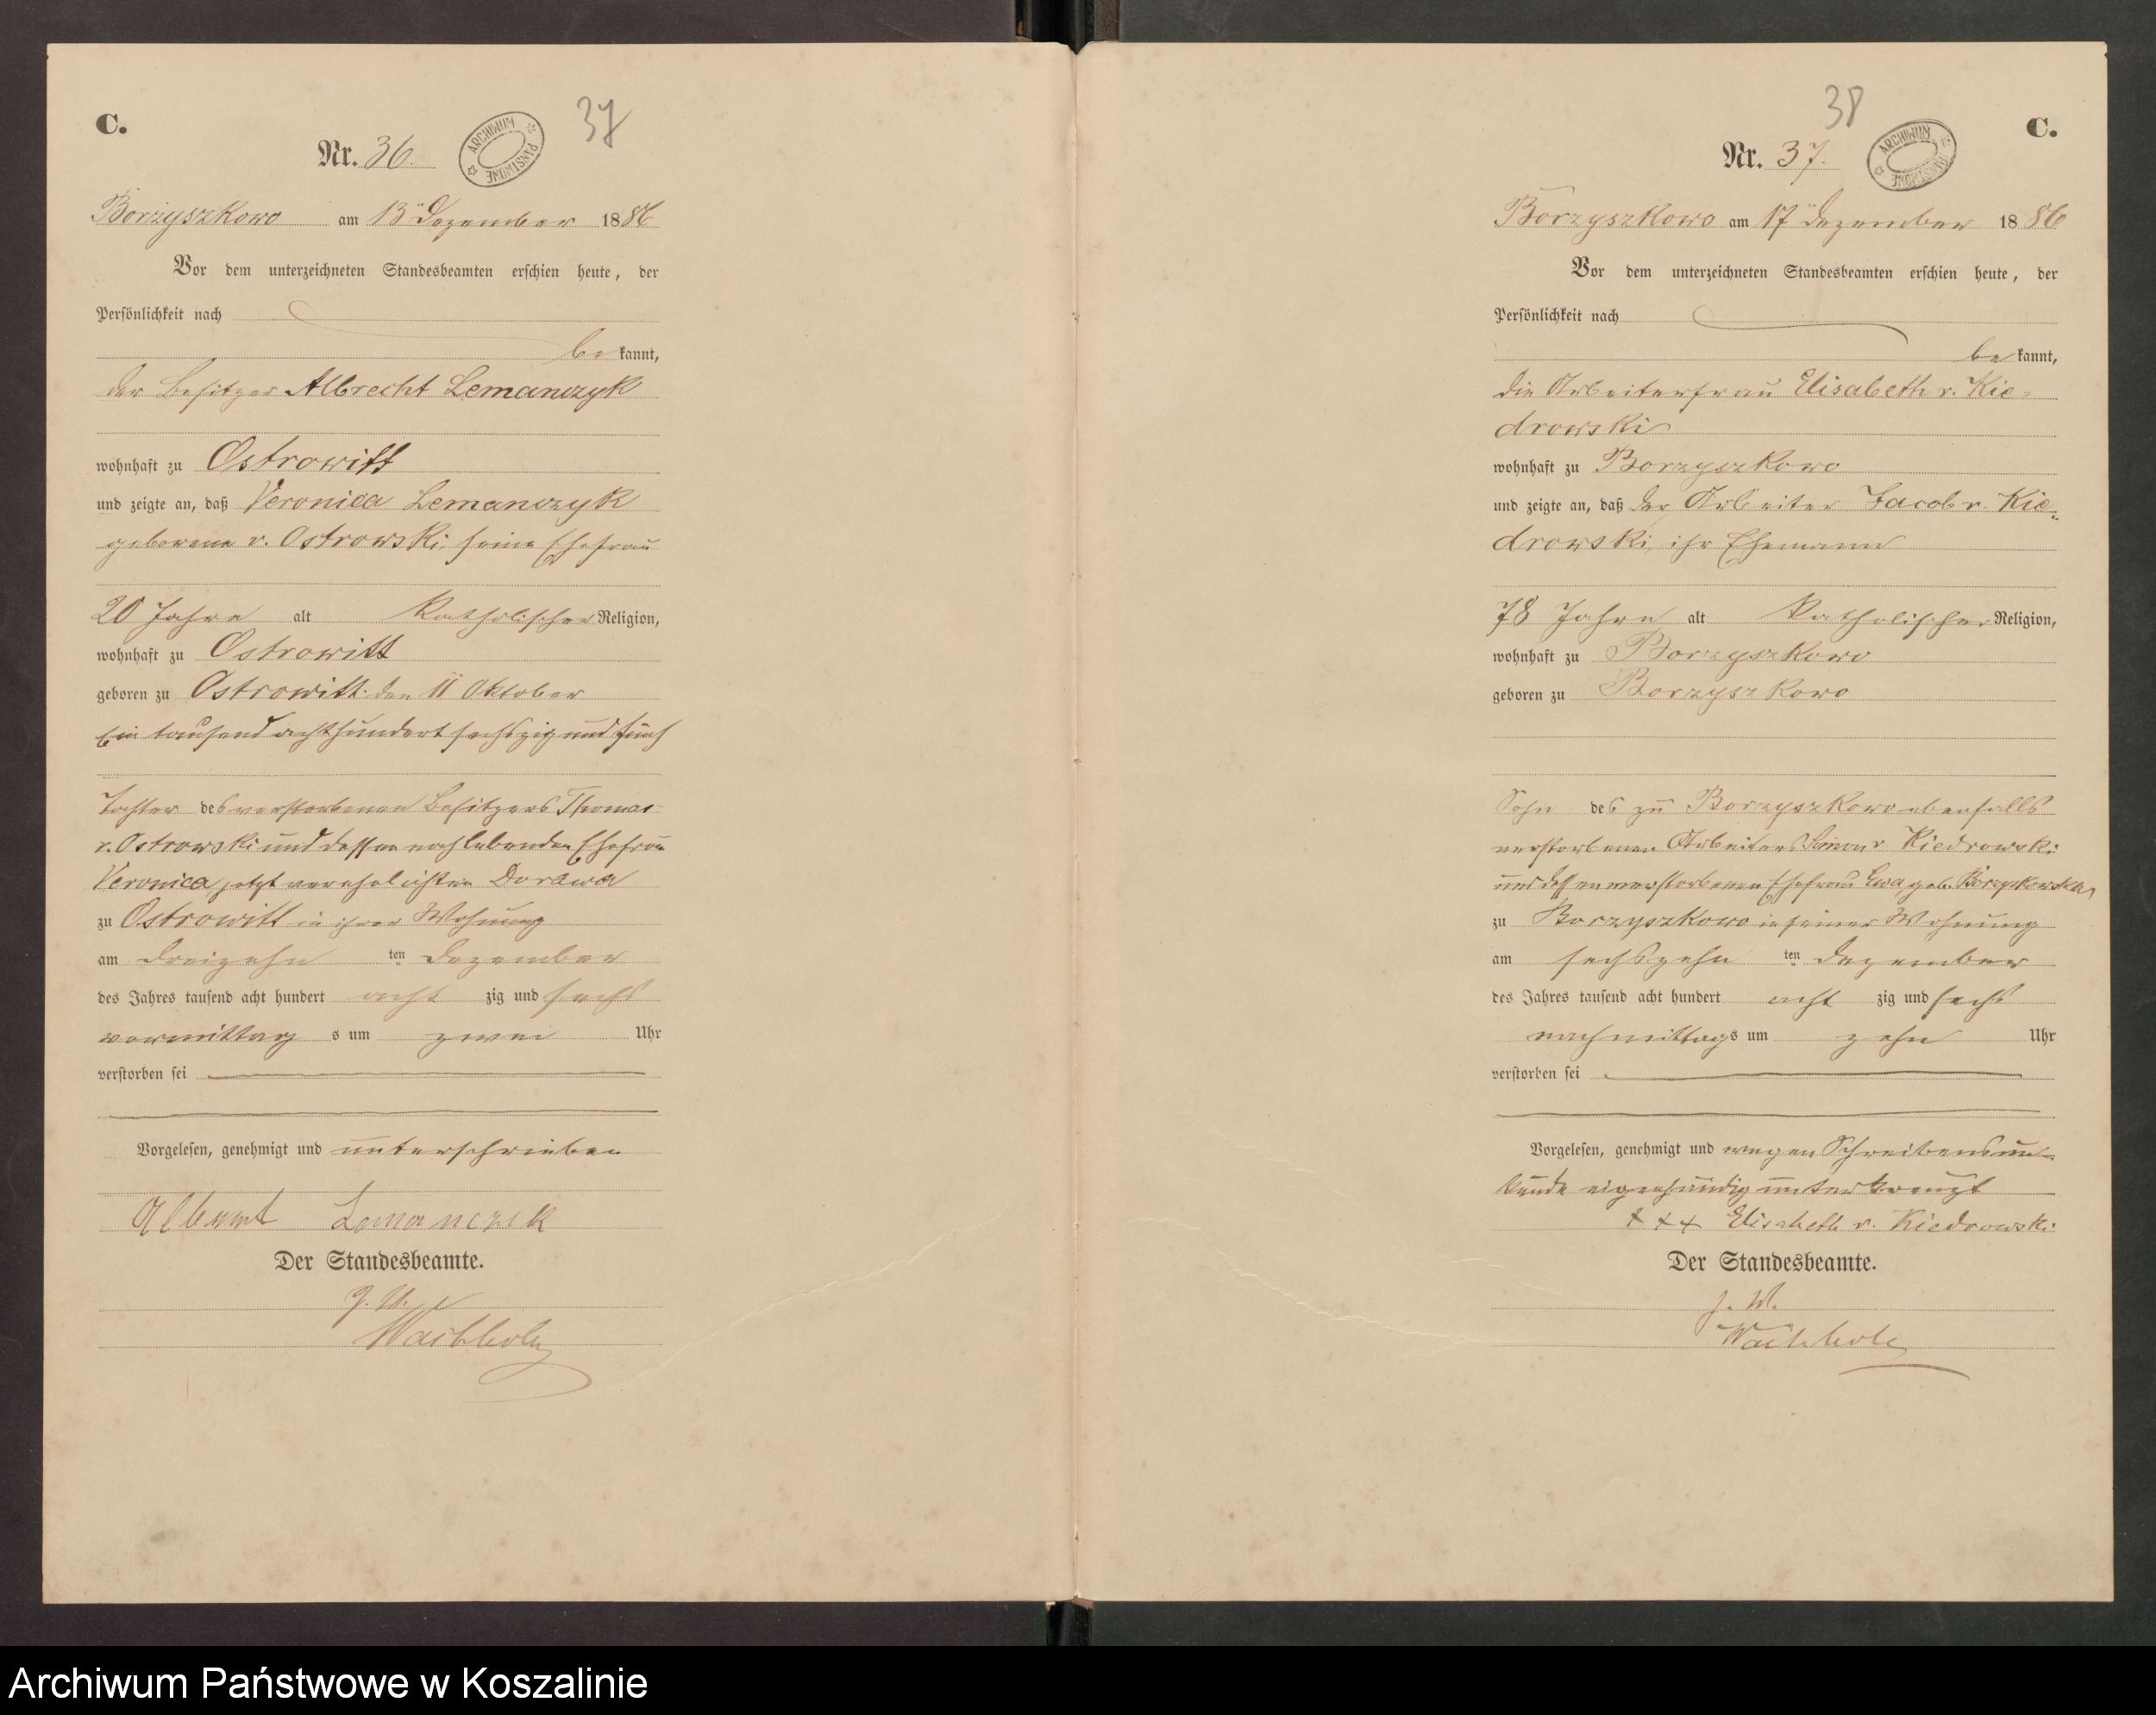 C.
Nr. 36.
ARCHIWUM PAŃSTWOWE
37
Borzyszkowo am 13ten Dezember 1886
Vor dem unterzeichneten Standesbeamten erschien heute, der
Persönlichkeit nach
be kannt,
der Besitzer Albrecht Lemanczyk
wohnhaft zu Ostrowitt
und zeigte an, daß Veronica Lemanczyk
geborene v. Ostrowski, seine Ehefrau
20 Jahre alt katholischer Religion,
wohnhaft zu Ostrowitt
geboren zu Ostrowitt den 11 Oktober
Ein tausend achthundert sechszig und fünf
Tochter des verstorbenen Besitzers Thomas
v. Ostrowski und dessen noch lebenden Ehefrau
Veronica, jetzt verehelichten Dorawa
zu Ostrowitt in ihrer Wohnung
am dreizehn ten Dezember
des Jahres tausend acht hundert acht zig und sechs
vormittag s um zwei Uhr
verstorben sei
Vorgelesen, genehmigt und unterschrieben
Albrecht Lemanczik
Der Standesbeamte.
J. V.
Wachholz
C.
38
Nr. 37.
ARCHIWUM PAŃSTWOWE
Borzyszkowo am 17ten Dezember 1886
Vor dem unterzeichneten Standesbeamten erschien heute, der
Persönlichkeit nach
be kannt,
die Arbeiterfrau Elisabeth v. Kie-
drowski
wohnhaft zu Borzyszkowo
und zeigte an, daß der Arbeiter Jacob v. Kie-
drowski, ihr Ehemann
78 Jahre alt katholischer Religion,
wohnhaft zu Borzyszkowo
geboren zu Borzyszkowo
Sohn des zu Borzyszkowo ebenfalls
verstorbenen Arbeiters Simon v Kiedrowski
und dessen verstorbenen Ehefrau Ewa, geb.
zu Borzyszkowo in seiner Wohnung
am sechszehn ten Dezember
des Jahres tausend acht hundert acht zig und sechs
nachmittags um zehn Uhr
verstorben sei
Vorgelesen, genehmigt und wegen Schreibensun-
kunde eigenhändig unterkreuzt
+ + + Elisabeth v. Kiedrowski
Der Standesbeamte.
J. V.
Wachholz
Archiwum Państwowe w Koszalinie